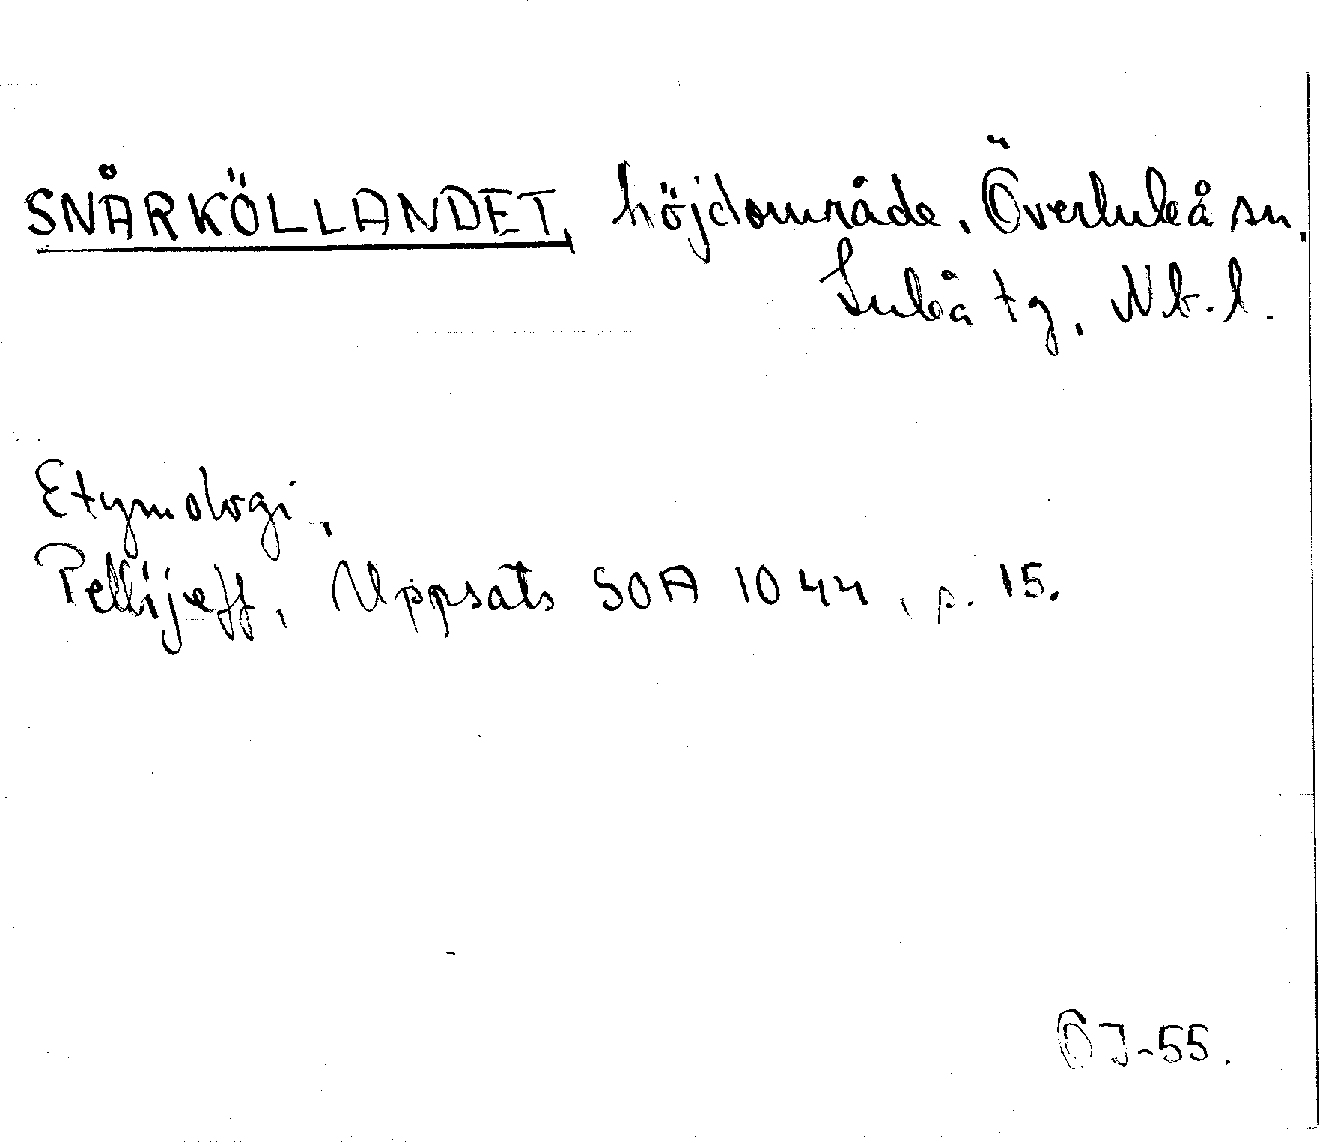 SNÅRKÖLLANDET, höjdområde, Överluleå sn,
Luleå tg, Nb.l.
Etymologi,
Pellijeff, Uppsats SOA 1044, s. 15.
ÖJ-55.